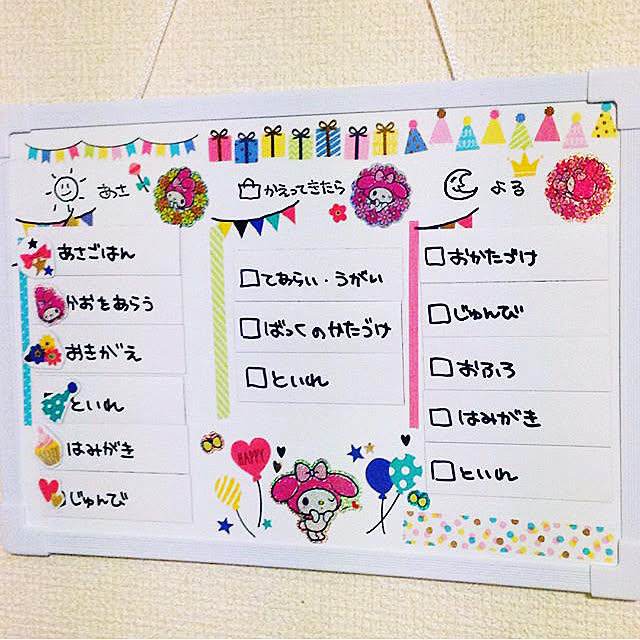 あさ
あさごはん
かおをあらう
おきがえ
といれ
はみがき
じゅんび
かえってきたら
てあらい・うがい
ばっくのかたづけ
といれ
よる
おかたづけ
じゅんび
おふろ
はみがき
といれ
HAPPY